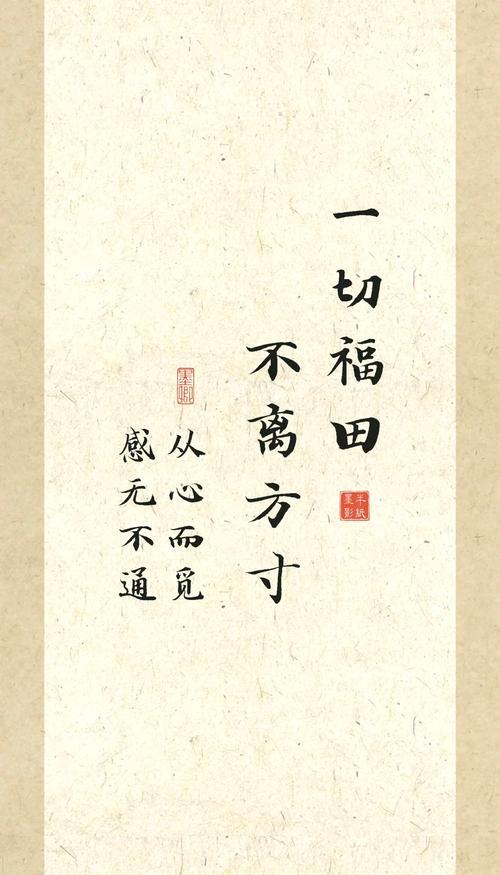 一切福田
半纸
墨影
不离方寸
墨卿
从心而觅
感无不通